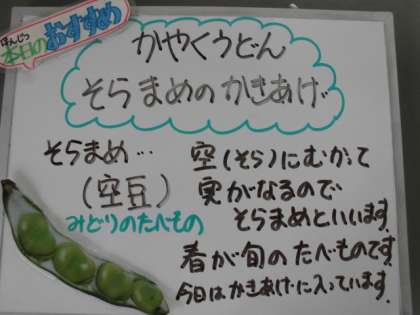 ほんじつ
本日のおすすめ
かやくうどん
そらまめのかきあげ
そらまめ… 空(そら)にむかって
(空豆) 実がなるので
みどりのたべもの そらまめといいます。
春が旬のたべものです。
今日はかきあげに入っています。